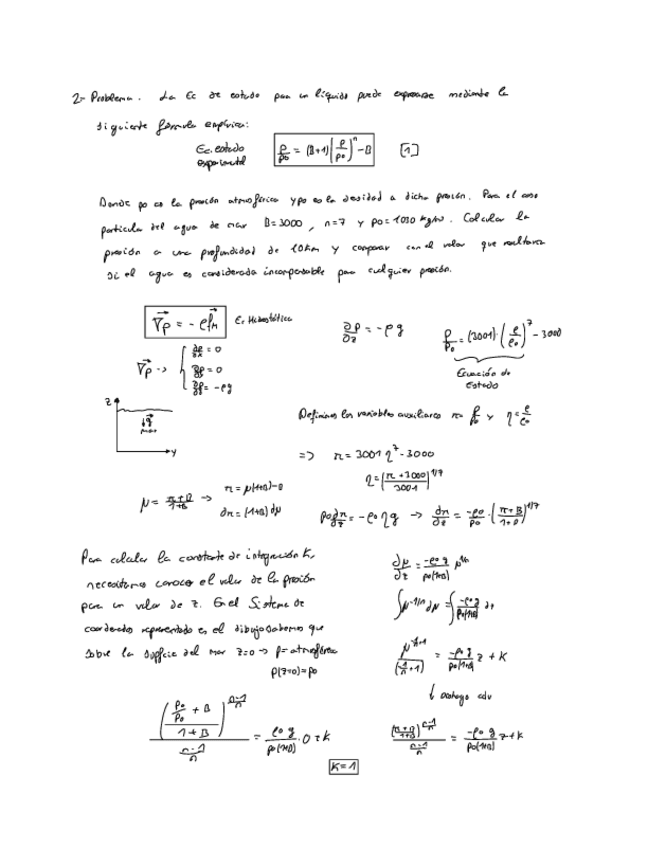 2- Problema. La Ec de estado para un líquido puede expresarse mediante la
siguiente fórmula empírica:
Ec. estado experimental p/p0 = (B+1)(ρ/ρ0)^n - B [1]
Donde p0 es la presión atmosférica y ρ0 es la densidad a dicha presión. Para el caso
particular del agua de mar B=3000, n=7 y ρ0=1030 kg/m³. Calcular la
presión a una profundidad de 10km y comparar con el valor que resultaría
si el agua es considerada incompresible para cualquier presión.
∇p = -ρ fm Ec Hidrostática
∂p/∂z = -ρ g
p/p0 = (3001)·(ρ/ρ0)^7 - 3000
Ecuación de
Estado
∇p -> { ∂p/∂x = 0
∂p/∂y = 0
∂p/∂z = -ρg
z
g
y
Definimos las variables auxiliares π = p/p0 y η = ρ/ρ0
=> π = 3001 η^7 - 3000
η = (π + 3000 / 3001)^1/7
μ = π+B / 1+B → π = μ(1+B) - B
dπ = (1+B) dμ
p0 dπ/dz = -ρ0 η g → dπ/dz = -ρ0/p0 · (π+B / 1+B)^1/7
Para calcular la constante de integración K,
necesitamos conocer el valor de la presión
para un valor de z. En el Sistema de
coordenadas representado en el dibujo sabemos que
sobre la superficie del mar z=0 → p= atmosférica
p(z=0)=p0
∂μ/∂z = -ρ0 g / p0(1+B) μ^1/n
∫μ^-1/n dμ = ∫ -ρ0 g / p0(1+B) dz
μ^-1/n+1 / (-1/n + 1) = -ρ0 g / p0(1+B) z + K
↓ Deshago cdv
((π+B) / (1+B))^n-1/n / n-1/n = -ρ0 g / p0(1+B) z + K
((p0/p0 + B) / (1+B))^n-1/n / n-1/n = ρ0 g / p0(1+B) · 0 + K
K = 1